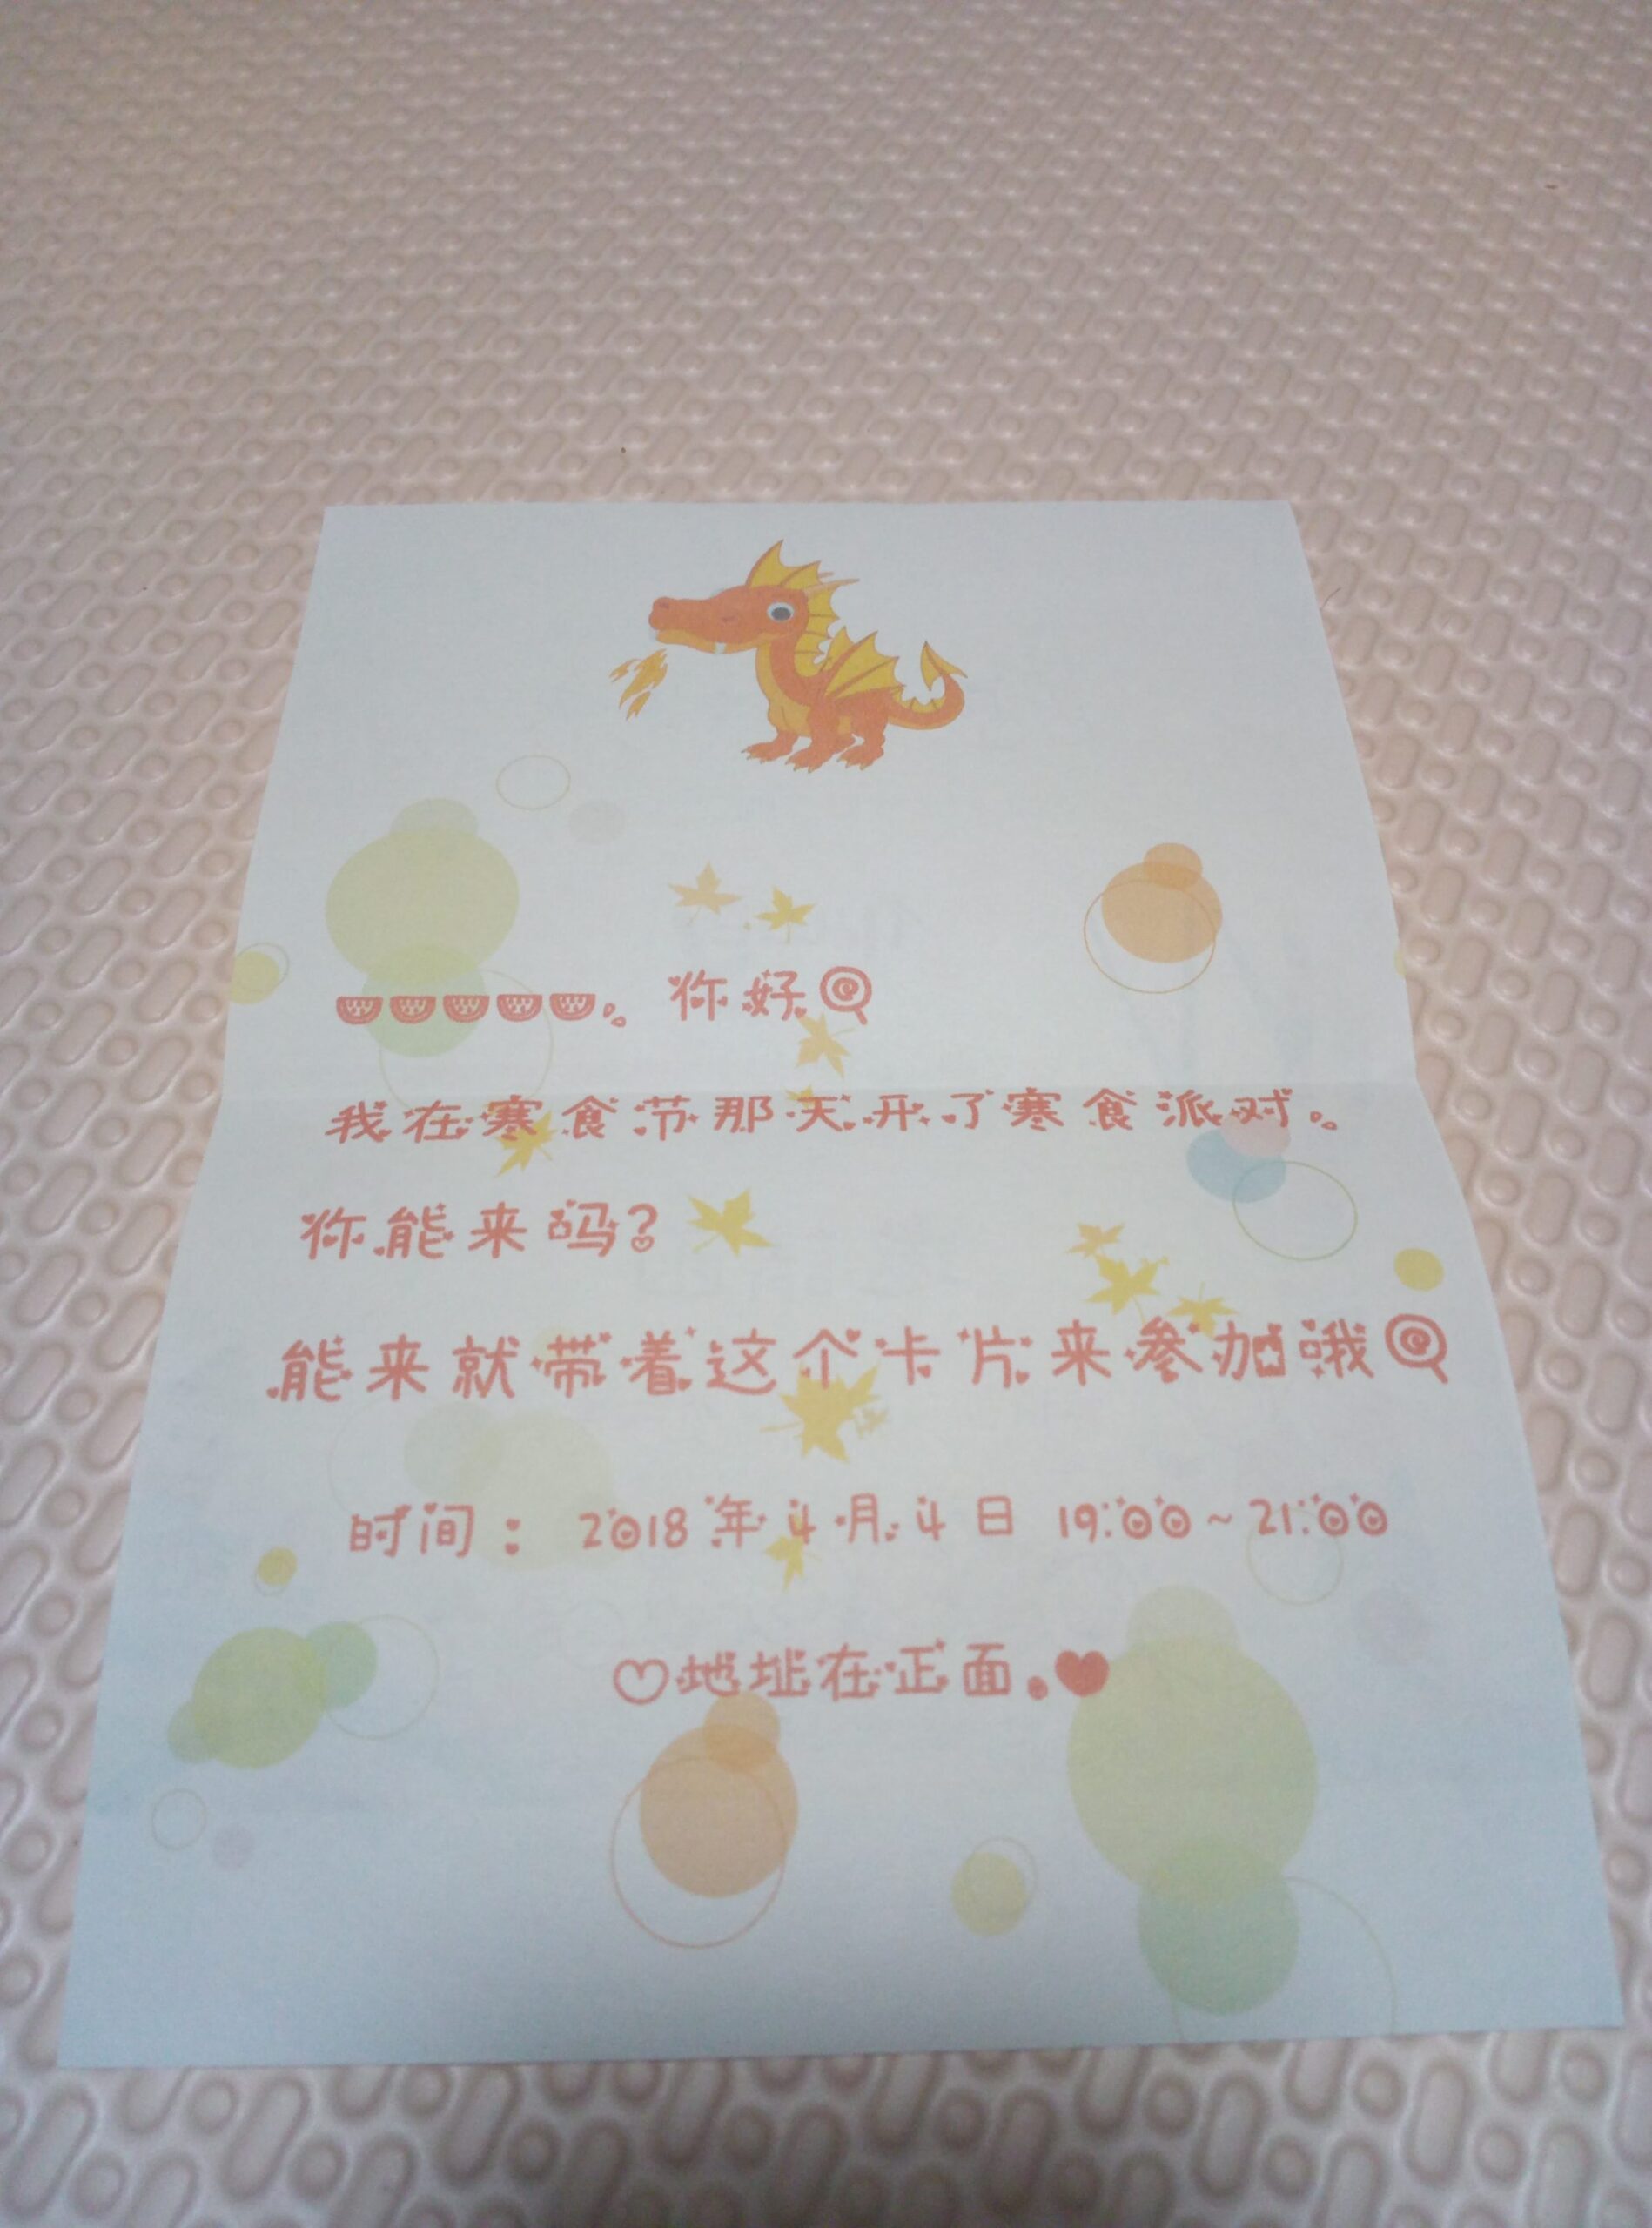 。你好
我在寒食节那天开了寒食派对。
你能来吗?
能来就带着这个卡片来参加哦
时间： 2018年4月4日 19:00~21:00
♡地址在正面.♥